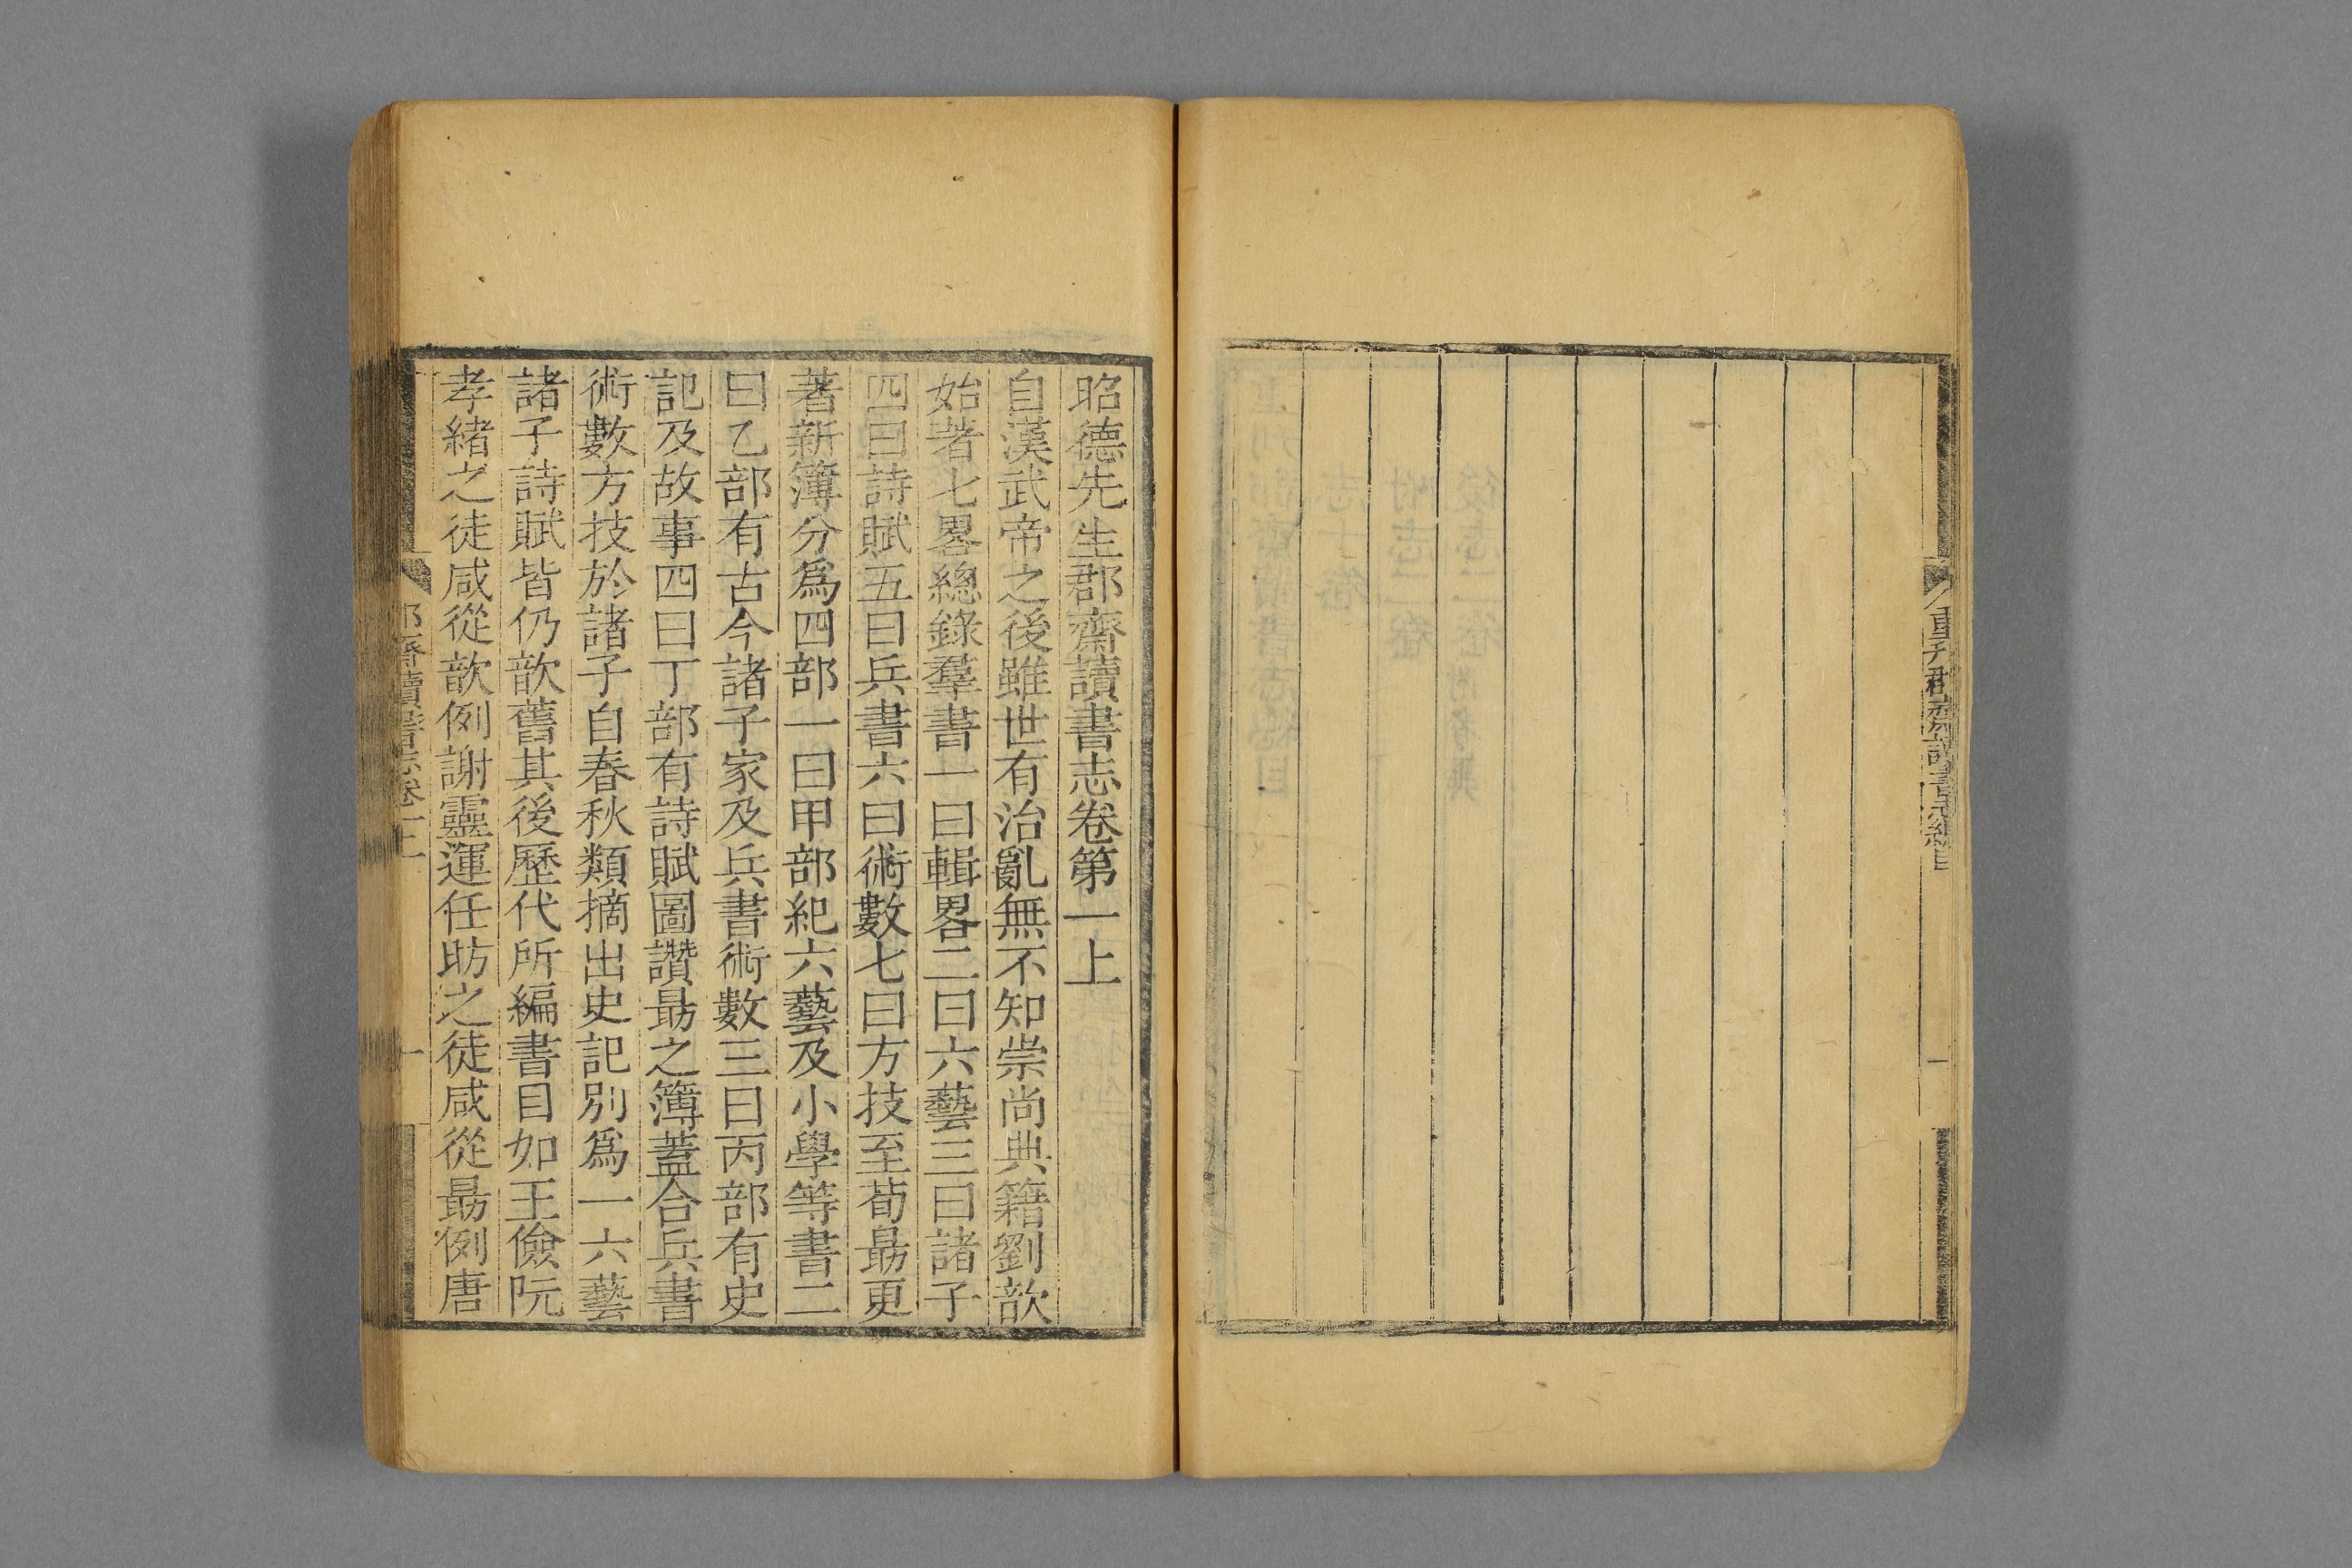 重刋郡齋讀書志緫目
一
昭德先生郡齋讀書志卷第一上
自漢武帝之後雖世有治亂無不知崇尚典籍劉歆
始著七畧總錄羣書一曰輯畧二曰六藝三曰諸子
四曰詩賦五曰兵書六曰術數七曰方技至荀勗更
著新簿分爲四部一曰甲部紀六藝及小學等書二
曰乙部有古今諸子家及兵書術數三曰丙部有史
記及故事四曰丁部有詩賦圖讚勗之簿蓋合兵書
術數方技於諸子自春秋類摘出史記別爲一六藝
諸子詩賦皆仍歆舊其後歷代所編書目如王儉阮
孝緒之徒咸從歆例謝靈運任昉之徒咸從勗例唐
郡齋讀書志卷一上
一